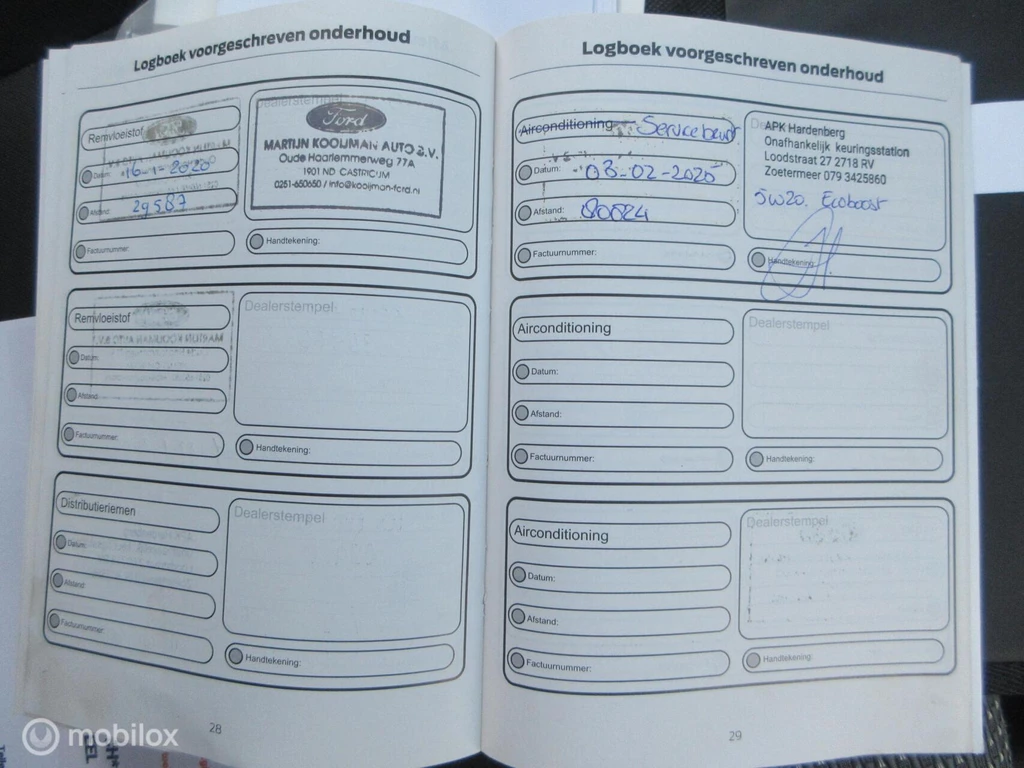 Logboek voorgeschreven onderhoud
Remvloeistof
Datum:
16-1-2020
Afstand:
29587
Factuurnummer:
Dealerstempel
Ford
MARTIJN KOOIJMAN AUTO B.V.
Oude Haarlemmerweg 77A
1901 ND CASTRICUM
0251-650650 / info@kooijman-ford.nl
Handtekening:
Remvloeistof
Datum:
Afstand:
Factuurnummer:
Dealerstempel
Handtekening:
Distributieriemen
Datum:
Afstand:
Factuurnummer:
Dealerstempel
Handtekening:
28
Logboek voorgeschreven onderhoud
Airconditioning Servicebeurt
Datum: 03-02-2025
Afstand: 80024
Factuurnummer:
APK Hardenberg
Onafhankelijk keuringsstation
Loodstraat 27 2718 RV
Zoetermeer 079 3425860
5W20. Ecoboost
Handtekening:
Airconditioning
Datum:
Afstand:
Factuurnummer:
Dealerstempel
Handtekening:
Airconditioning
Datum:
Afstand:
Factuurnummer:
Dealerstempel
Handtekening:
29
mobilox